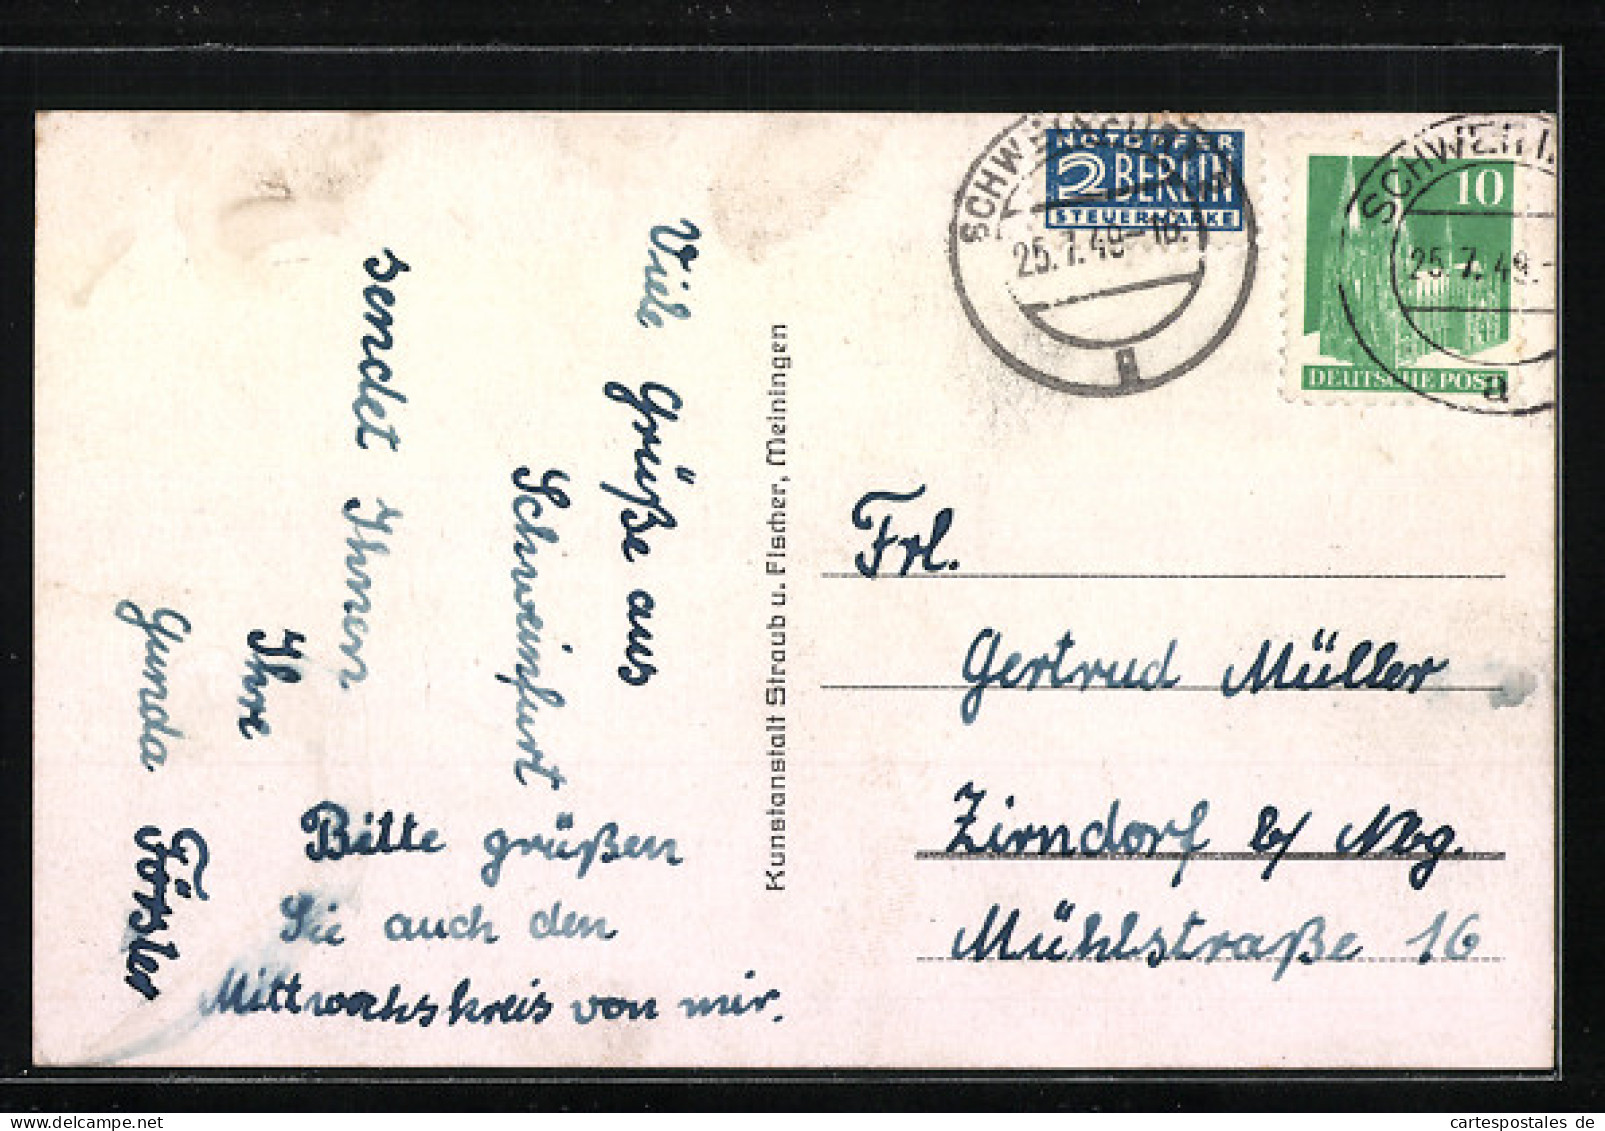 Viele Grüße aus
Schweinfurt
sendet Ihnen
Ihre
Gunda Förster
Bitte grüßen
Sie auch den
Mittwochskreis von mir.
Kunstanstalt Straub u. Fischer, Meiningen
NOTOPFER
2 BERLIN
STEUERMARKE
SCHWEINFURT
25.7.49-18.
a
10
DEUTSCHE POST
SCHWEIN
25.7.49.-
a
Frl.
Gertrud Müller
Zirndorf b/ Nbg.
Mühlstraße 16
www.cartespostales.de